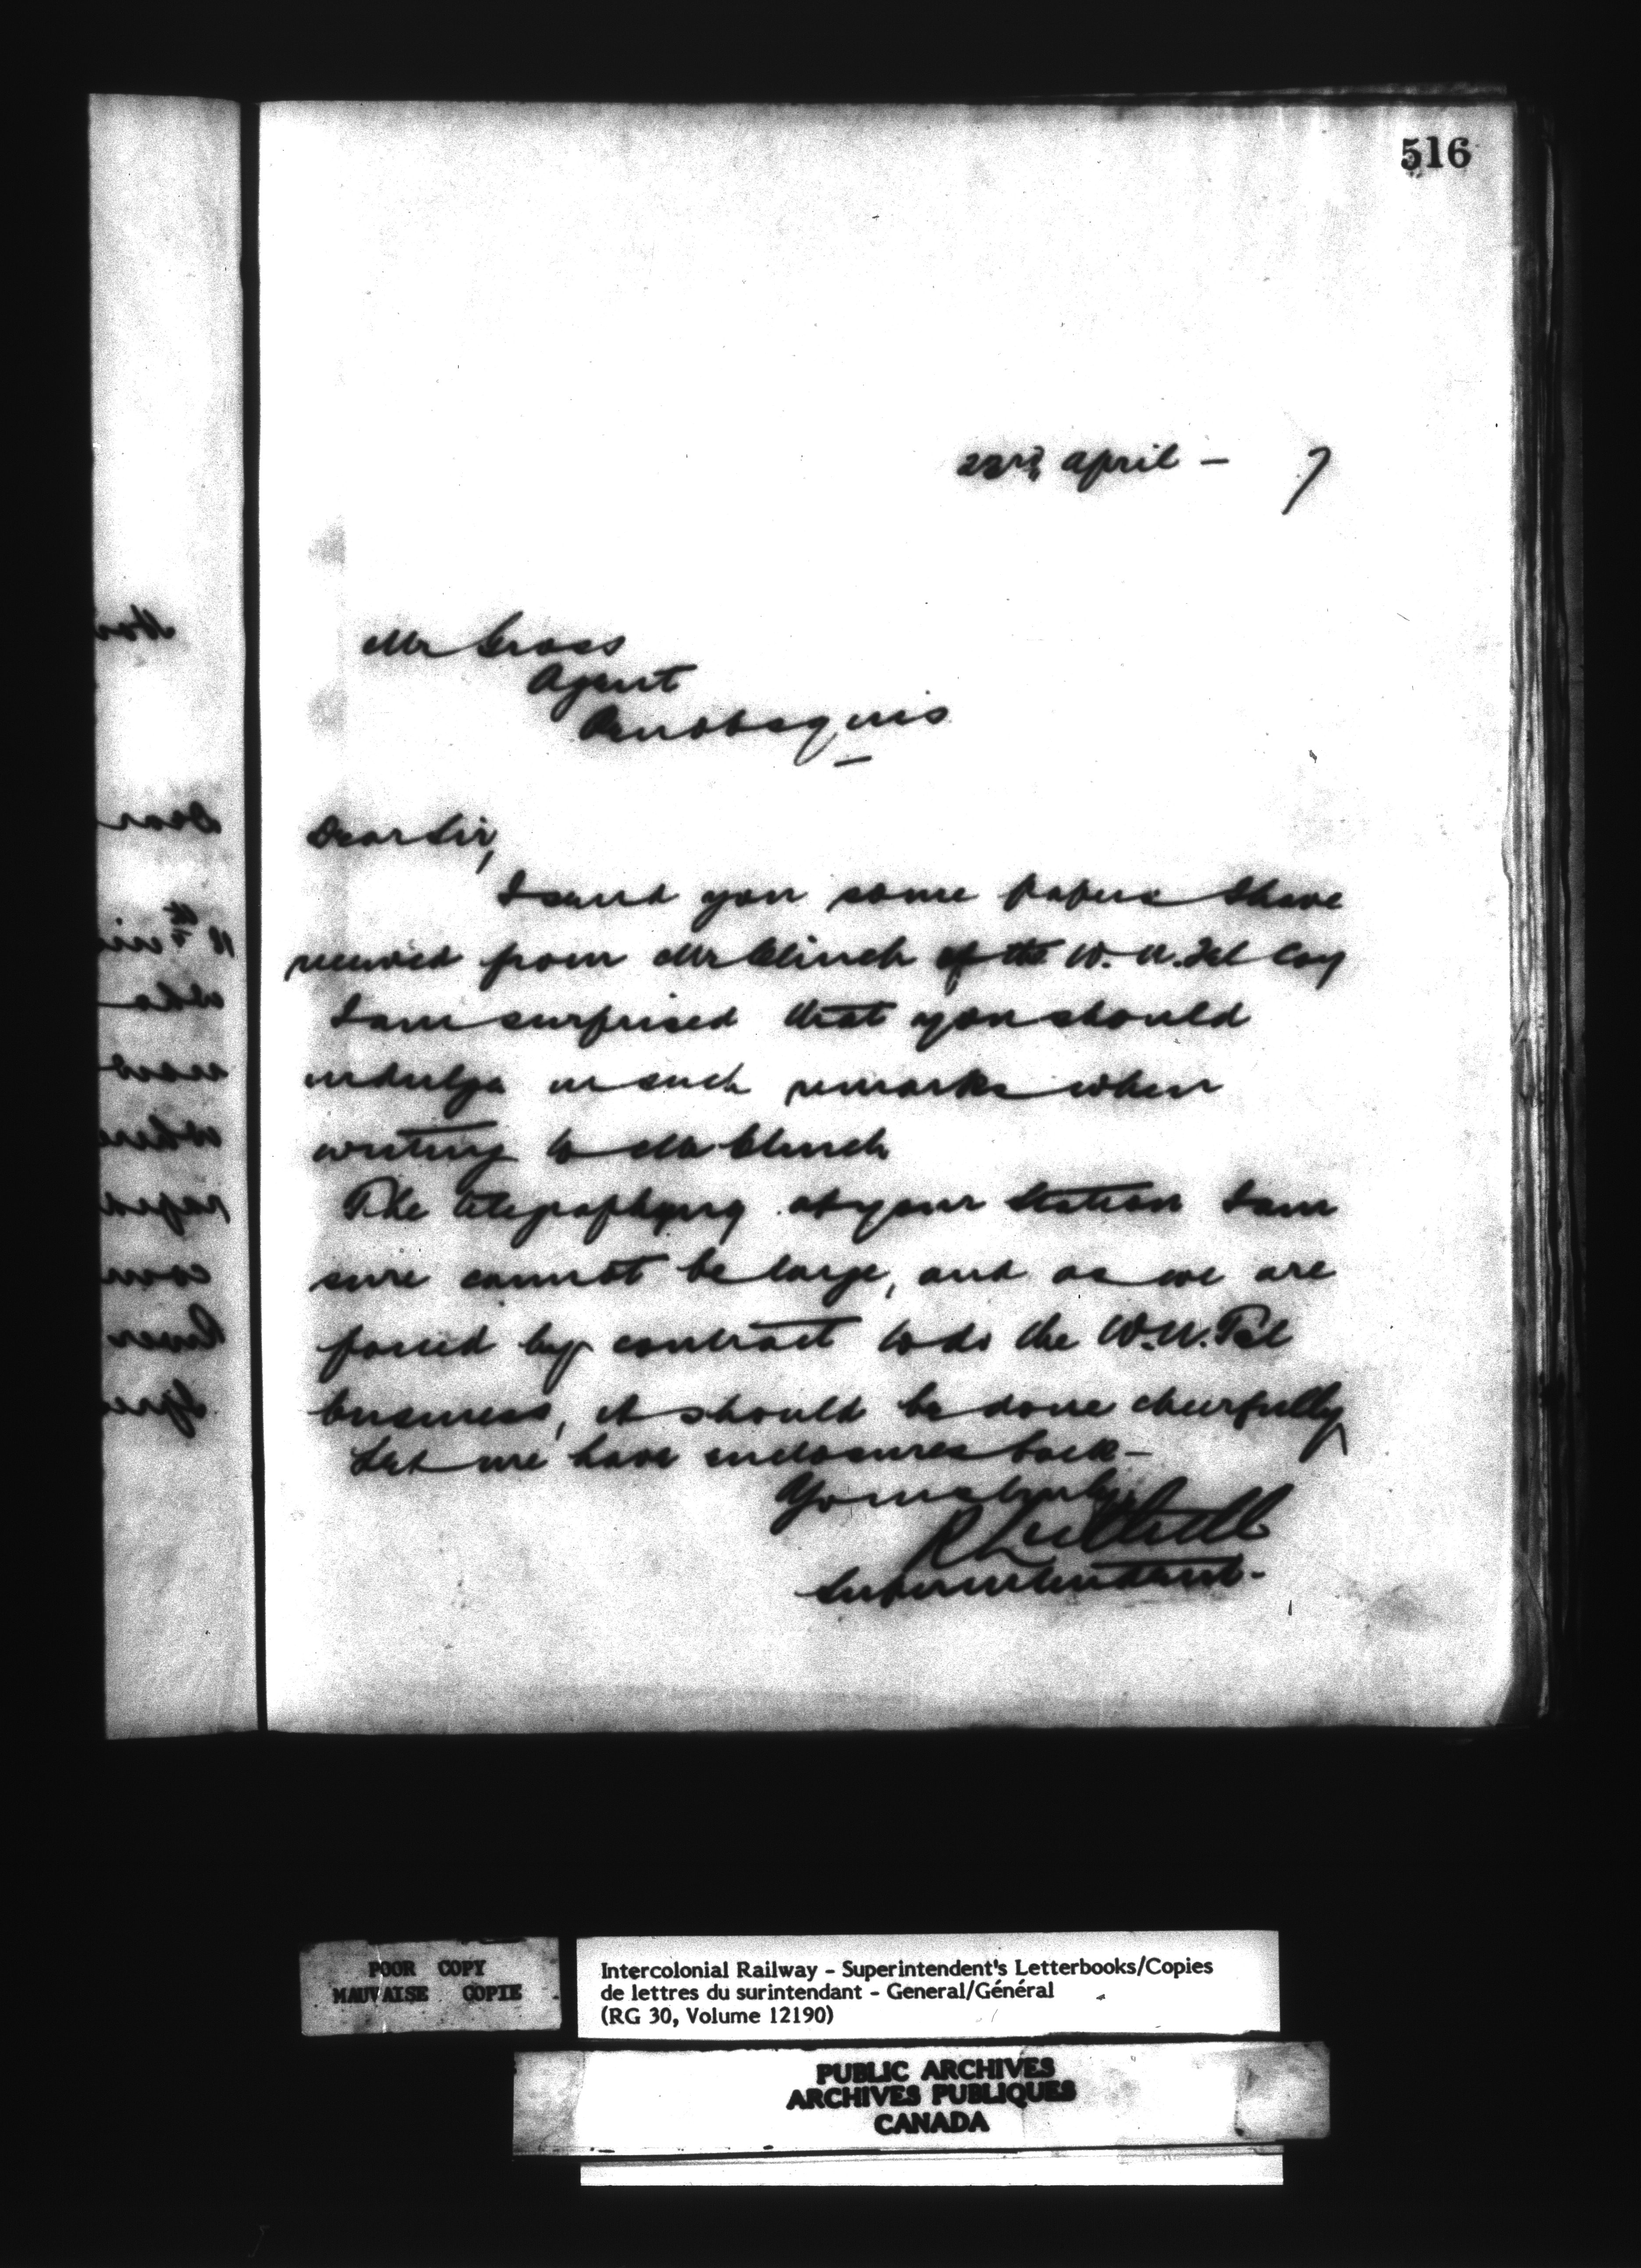 516
23rd April - 7
Mr Gross
Agent
Penobsquis
Dear Sir,
I send you some papers I have
received from Mr Clinch of the W. U. Tel Coy
I am surprised that you should
indulge in such remarks when
writing to Mr Clinch
The telegraphing at your Station I am
sure cannot be large, and as we are
forced by contract to do the W. U. Tel
business, it should be done cheerfully
Let me have enclosures back -
Yours truly,
R Luttrell
Superintendent.
POOR COPY
MAUVAISE COPIE
Intercolonial Railway - Superintendent's Letterbooks/Copies
de lettres du surintendant - General/Général
(RG 30, Volume 12190)
PUBLIC ARCHIVES
ARCHIVES PUBLIQUES
CANADA